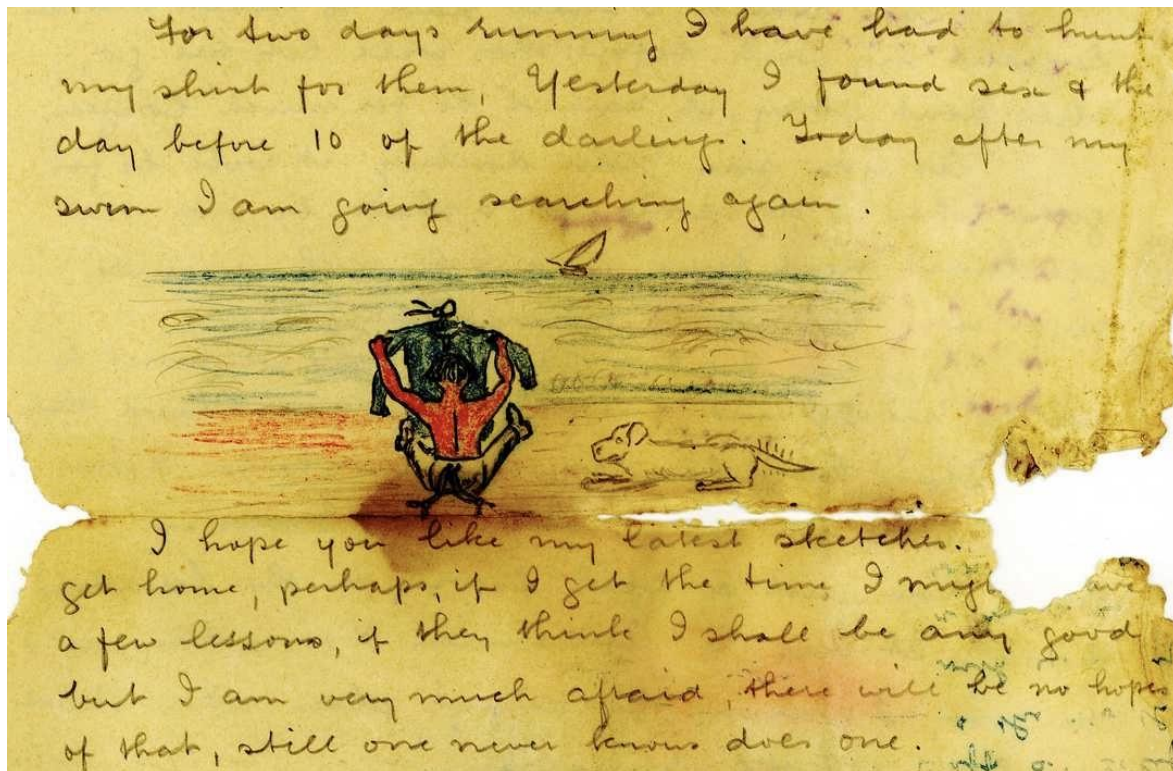 For two days running I have had to hunt
my shirt for them, Yesterday I found six & the
day before 10 of the darlings. Today after my
swim I am going searching again.
I hope you like my latest sketches.
get home, perhaps, if I get the time I
a few lessons, if they think I shall be any good
but I am very much afraid, there will be no hope
of that, still one never knows does one.